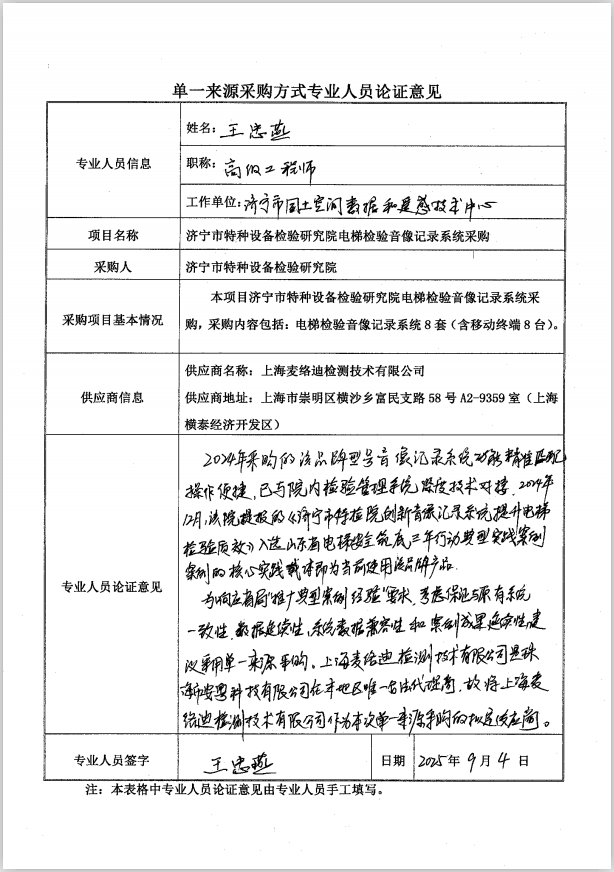 单一来源采购方式专业人员论证意见
专业人员信息
姓名：王忠燕
职称：高级工程师
工作单位：济宁市国土空间数据和遥感技术中心
项目名称 济宁市特种设备检验研究院电梯检验音像记录系统采购
采购人 济宁市特种设备检验研究院
采购项目基本情况
本项目济宁市特种设备检验研究院电梯检验音像记录系统采
购，采购内容包括：电梯检验音像记录系统8套（含移动终端8台）。
供应商信息
供应商名称：上海麦络迪检测技术有限公司
供应商地址：上海市崇明区横沙乡富民支路58号A2-9359室（上海
横泰经济开发区）
专业人员论证意见
2024年采购的该品牌型号音像记录系统功能精准匹配
操作便捷，已与院内检验管理系统深度技术对接，2024年
12月，该院提报的《济宁市特检院创新音像记录系统提升电梯
检验质效》入选山东省电梯安全筑底三年行动典型实践案例
案例的核心实践载体即为当前使用该品牌产品.
为响应省局"推广典型案例经验"要求，考虑保证与原有系统
一致性，数据延续性，系统数据兼容性和案例成果延续性，建
议采用单一来源采购。上海麦络迪检测技术有限公司是珠
海安粤科技有限公司在本地区唯一合法代理商，故将上海麦
络迪检测技术有限公司作为本次单一来源采购的拟定供应商。
专业人员签字 王忠燕 日期 2025年9月4日
注：本表格中专业人员论证意见由专业人员手工填写。